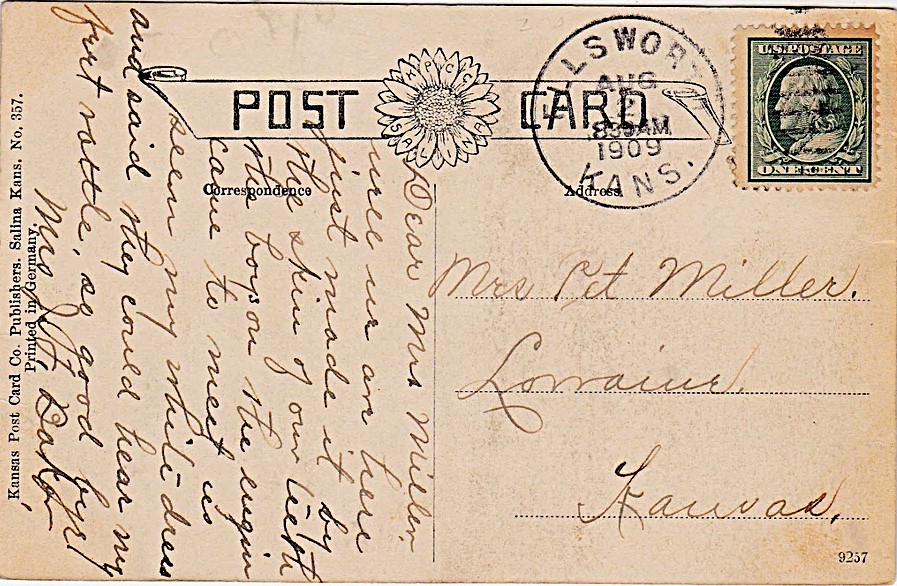 POST CARD
K.P.C.C.
SALINA
ELLSWORTH
AUG
830AM
1909
KANS.
U.S. POSTAGE
ONE CENT
Correspondence
Address.
Dear Mrs Miller.
well we are here
just made it by
the skin of our teeth
the boys on the engin
came to meet us
seen my white dress
and said they could hear my
feet rattle, so good bye!
Mrs J.F. Baker
Mrs Pet Miller.
Lorraine.
Kansas.
9257
Kansas Post Card Co. Publishers. Salina Kans. No. 357.
Printed in Germany.